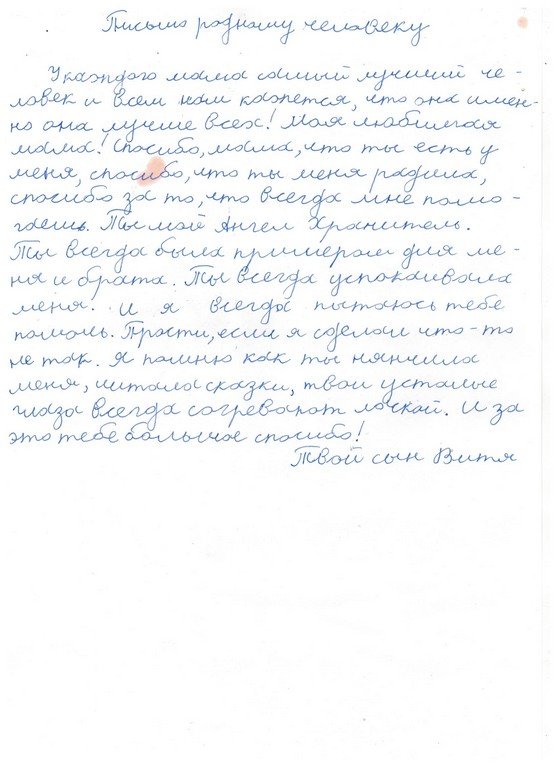 Письмо родному человеку
У каждого мама самый лучший че-
ловек и всем нам кажется, что она имен-
но она лучше всех! Моя любимая
мама! Спасибо, мама, что ты есть у
меня, спасибо, что ты меня радила,
спасибо за то, что всегда мне помо-
гаешь. Ты мой Ангел Хранитель.
Ты всегда была примером для ме-
ня и брата. Ты всегда успокаивала
меня. И я всегда пытаюсь тебе
помочь. Прости, если я сделал что-то
не так. Я помню как ты нянчила
меня, читала сказки, твои усталые
глаза всегда согревают лаской. И за
это тебе большое спасибо!
Твой сын Витя